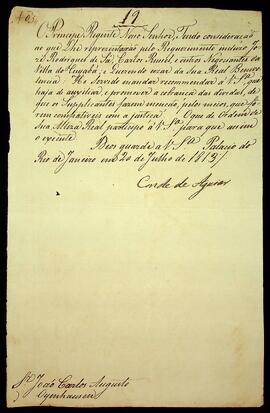 19
O Principe Regente Nosso Senhor, Tendo consideração
ao que Lhe representarão pelo Requerimento incluso Jozé
Rodrigues de Sá, Carlos e outros Negociantes da
Villa do Cuyabá, e Querendo uzar da Sua Real Benevo-
lencia: He Servido mandar recommendar a V. Sª. que
haja de auxiliar, e promover a cobrança das dividas, de
que os Supplicantes fazem menção, pelos meios, que fo-
rem compativeis com a justiça. O que de Ordem de
Sua Alteza Real participo a V. Sª. para que assim
o execute.
Deos guarde a V. Sª. Palacio do
Rio de Janeiro em 20 de Julho de 1813
Conde de Aguiar
Sr. João Carlos Augusto
Oyenhausen